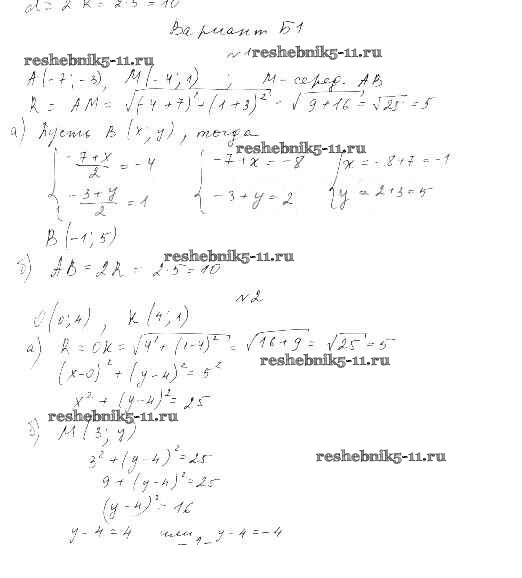 d = 2R = 2·5 = 10
Вариант Б1
№1
reshebnik5-11.ru
reshebnik5-11.ru
A(-7; -3), M(-4; 1) ; M - серед. AB
R = AM = √((-4+7)² + (1+3)²) = √(9+16) = √25 = 5
а) Пусть B (x; y), тогда
reshebnik5-11.ru
{ (-7+x)/2 = -4 { -7+x = -8 { x = -8+7 = -1
{ (-3+y)/2 = 1 { -3+y = 2 { y = 2+3 = 5
B(-1; 5)
reshebnik5-11.ru
б) AB = 2R = 2·5 = 10
№2
O(0; 4), K(4; 1)
а) R = OK = √(4² + (1-4)²) = √(16+9) = √25 = 5
reshebnik5-11.ru
(x-0)² + (y-4)² = 5²
x² + (y-4)² = 25
reshebnik5-11.ru
б) M(3; y)
3² + (y-4)² = 25
reshebnik5-11.ru
9 + (y-4)² = 25
(y-4)² = 16
y-4 = 4 или y-4 = -4